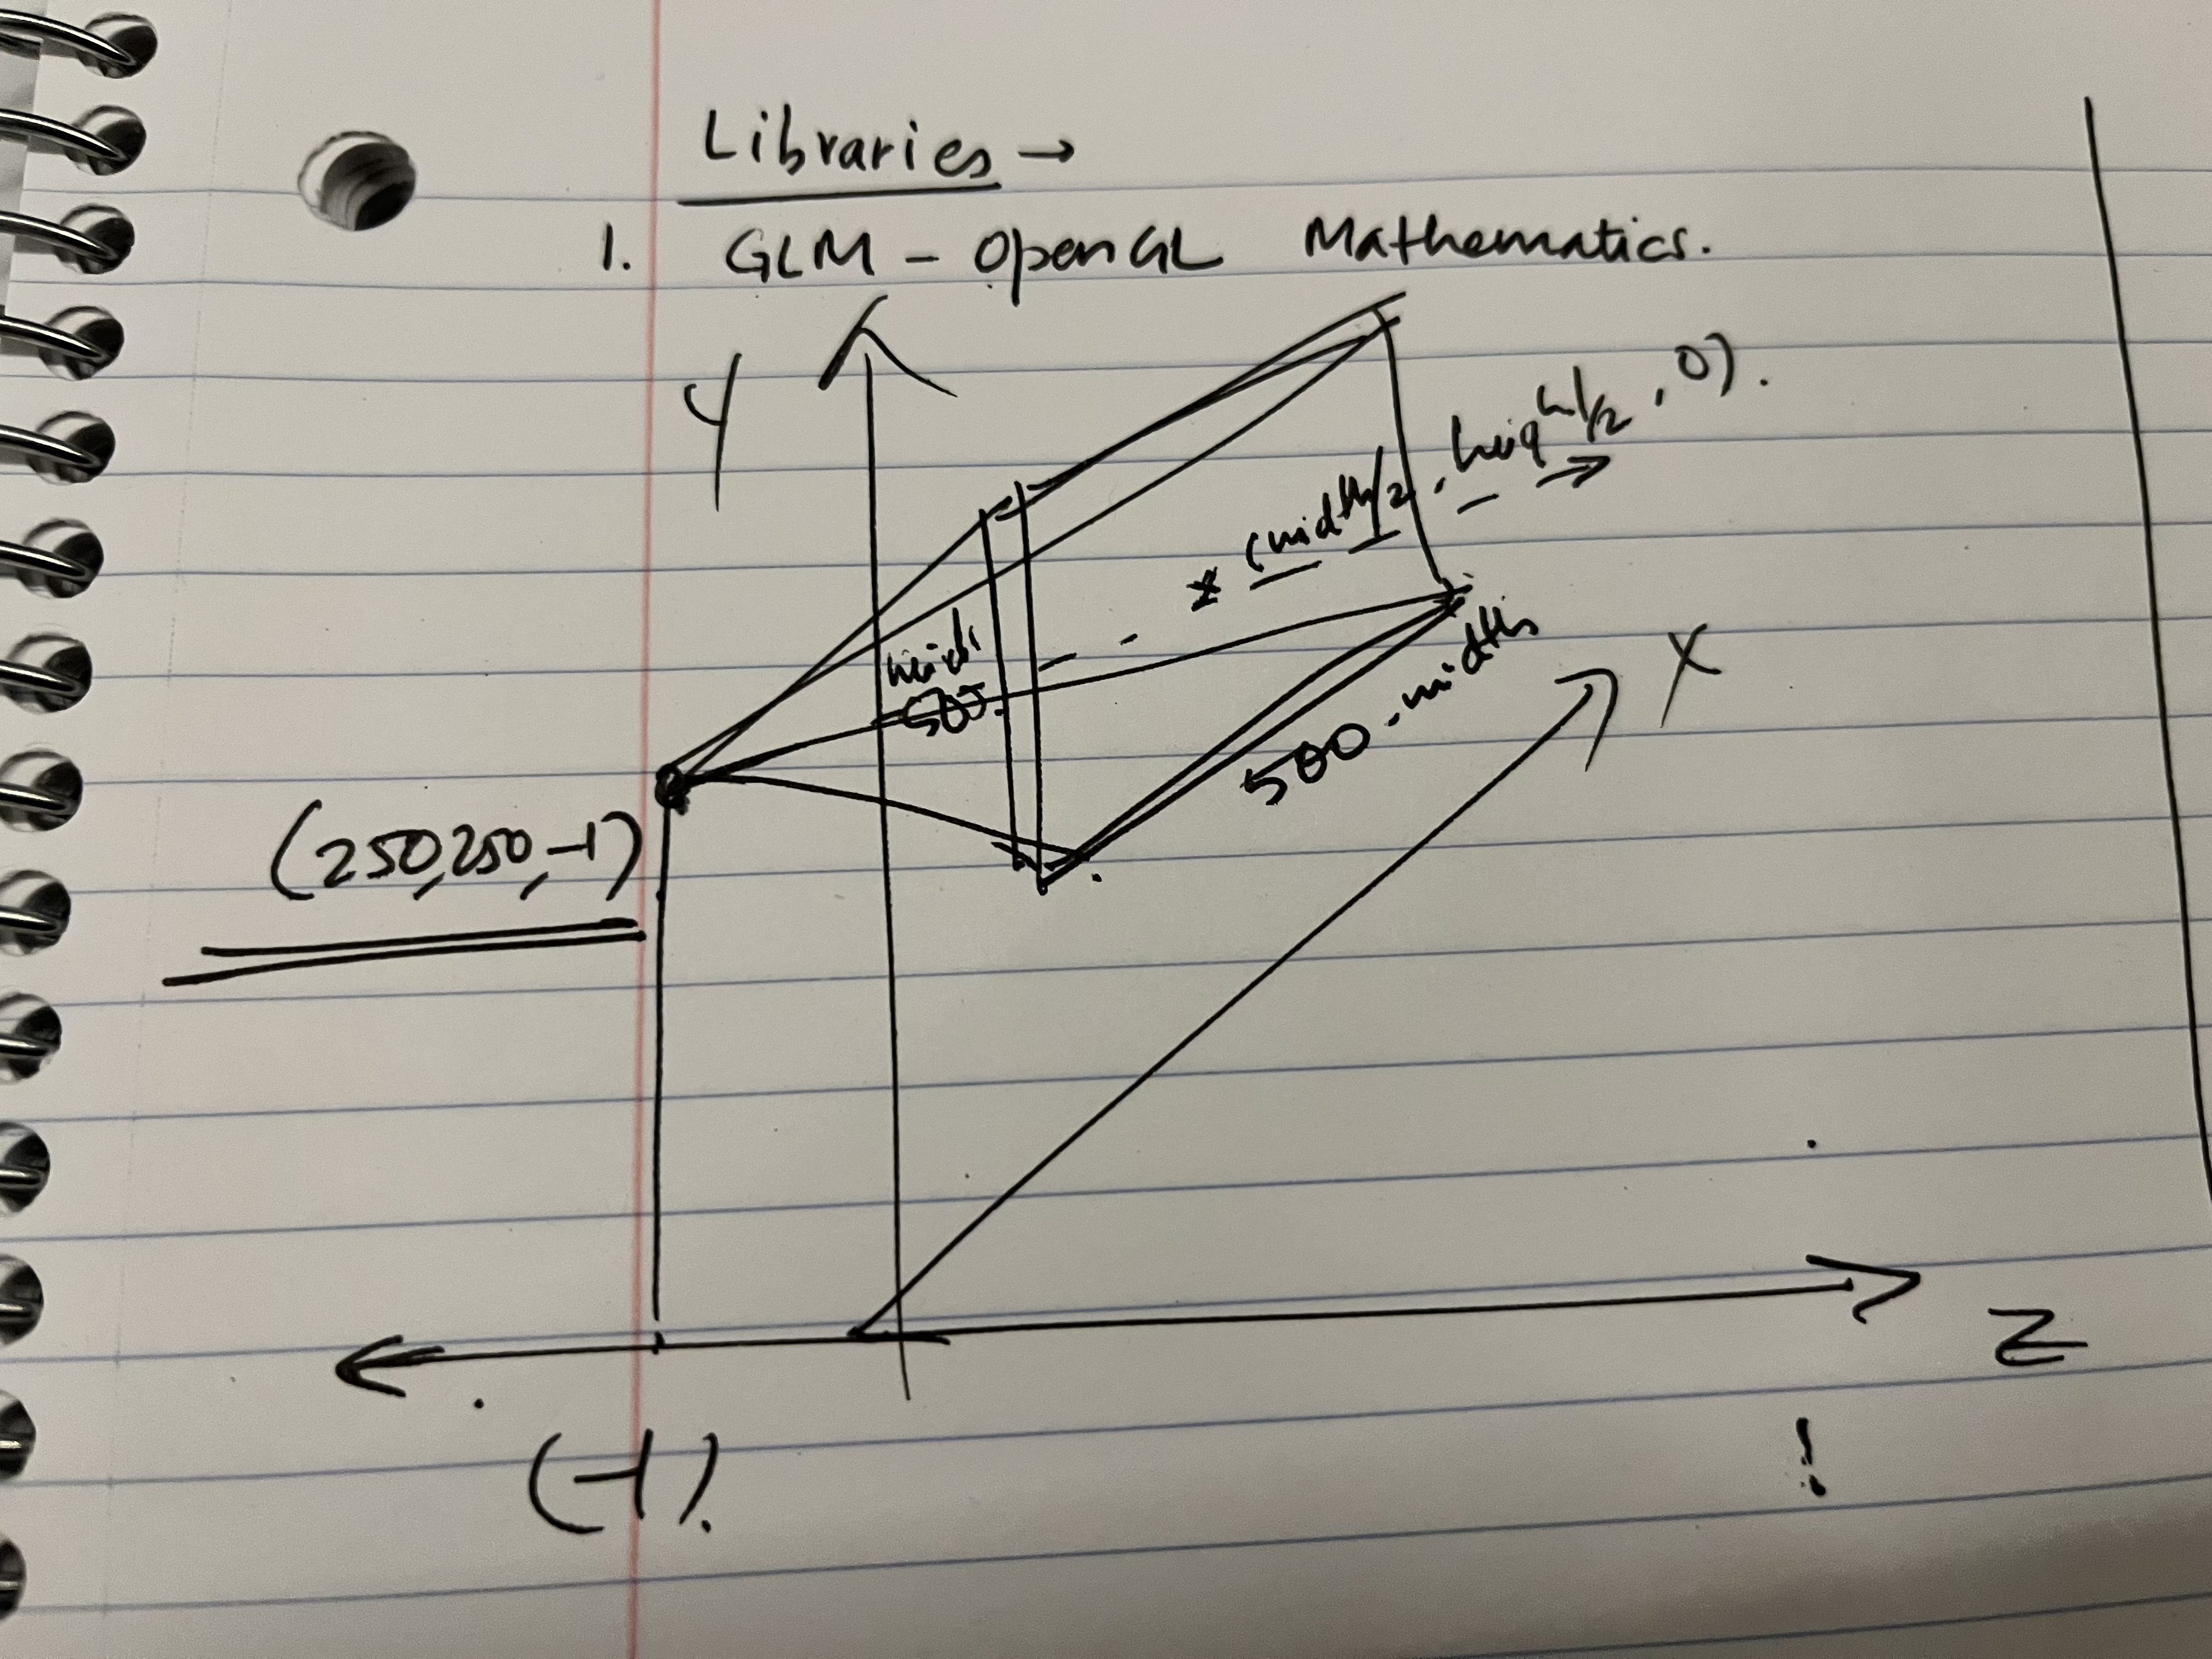 Libraries →
1. GLM - OpenGL Mathematics.
Y
(width/2, height/2, 0).
500
500 - width
X
(250,250,-1)
Z
(-1).
!